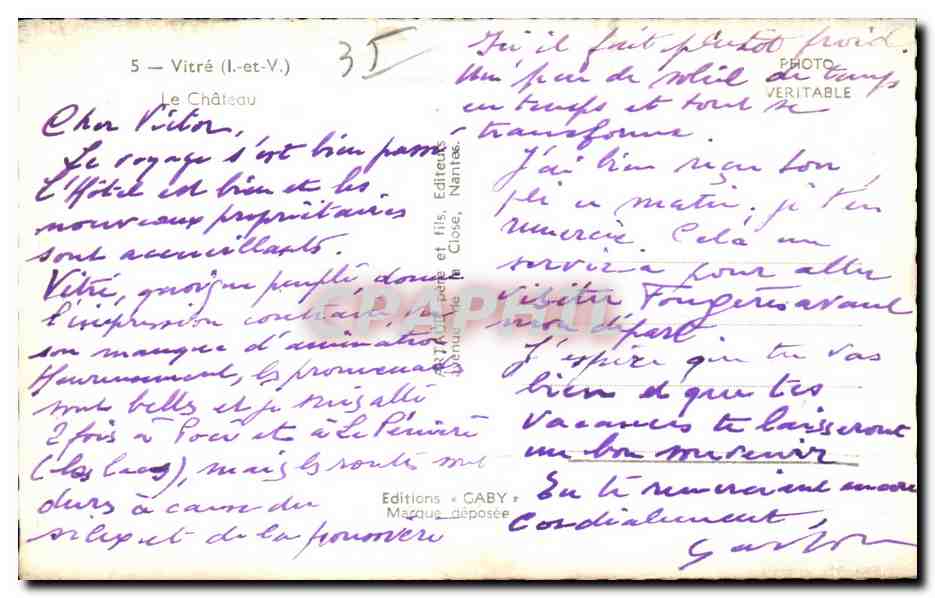 5 — Vitré (I.-et-V.)
Le Château
35
PHOTO
VERITABLE
Cher Victor,
Le voyage s'est bien passé.
L'Hôtel est bien et les
nouveaux propriétaires
sont accueillants.
Vitré, quoique peuplé, donne
l'impression contraire,
son manque d'animation
Heureusement, les promenades
sont belles et je suis allé
2 fois à Pocé et à
(les lacs), mais les routes sont
durs à cause du
silex et de la poussière
Ici il fait plutôt froid.
Un peu de soleil de temps
en temps et tout se
transforme.
J'ai bien reçu ton
pli ce matin, je t'en
remercie. Cela me
servira pour aller
visiter Fougères avant
mon départ
J'espère que tu vas
bien et que tes
vacances te laisseront
un bon souvenir
En te remerciant encore
Cordialement,
Gaston
ARTAUD père et fils, Editeurs
Avenue de la Close, Nantes.
Editions « GABY »
Marque déposée
CPAPHIL